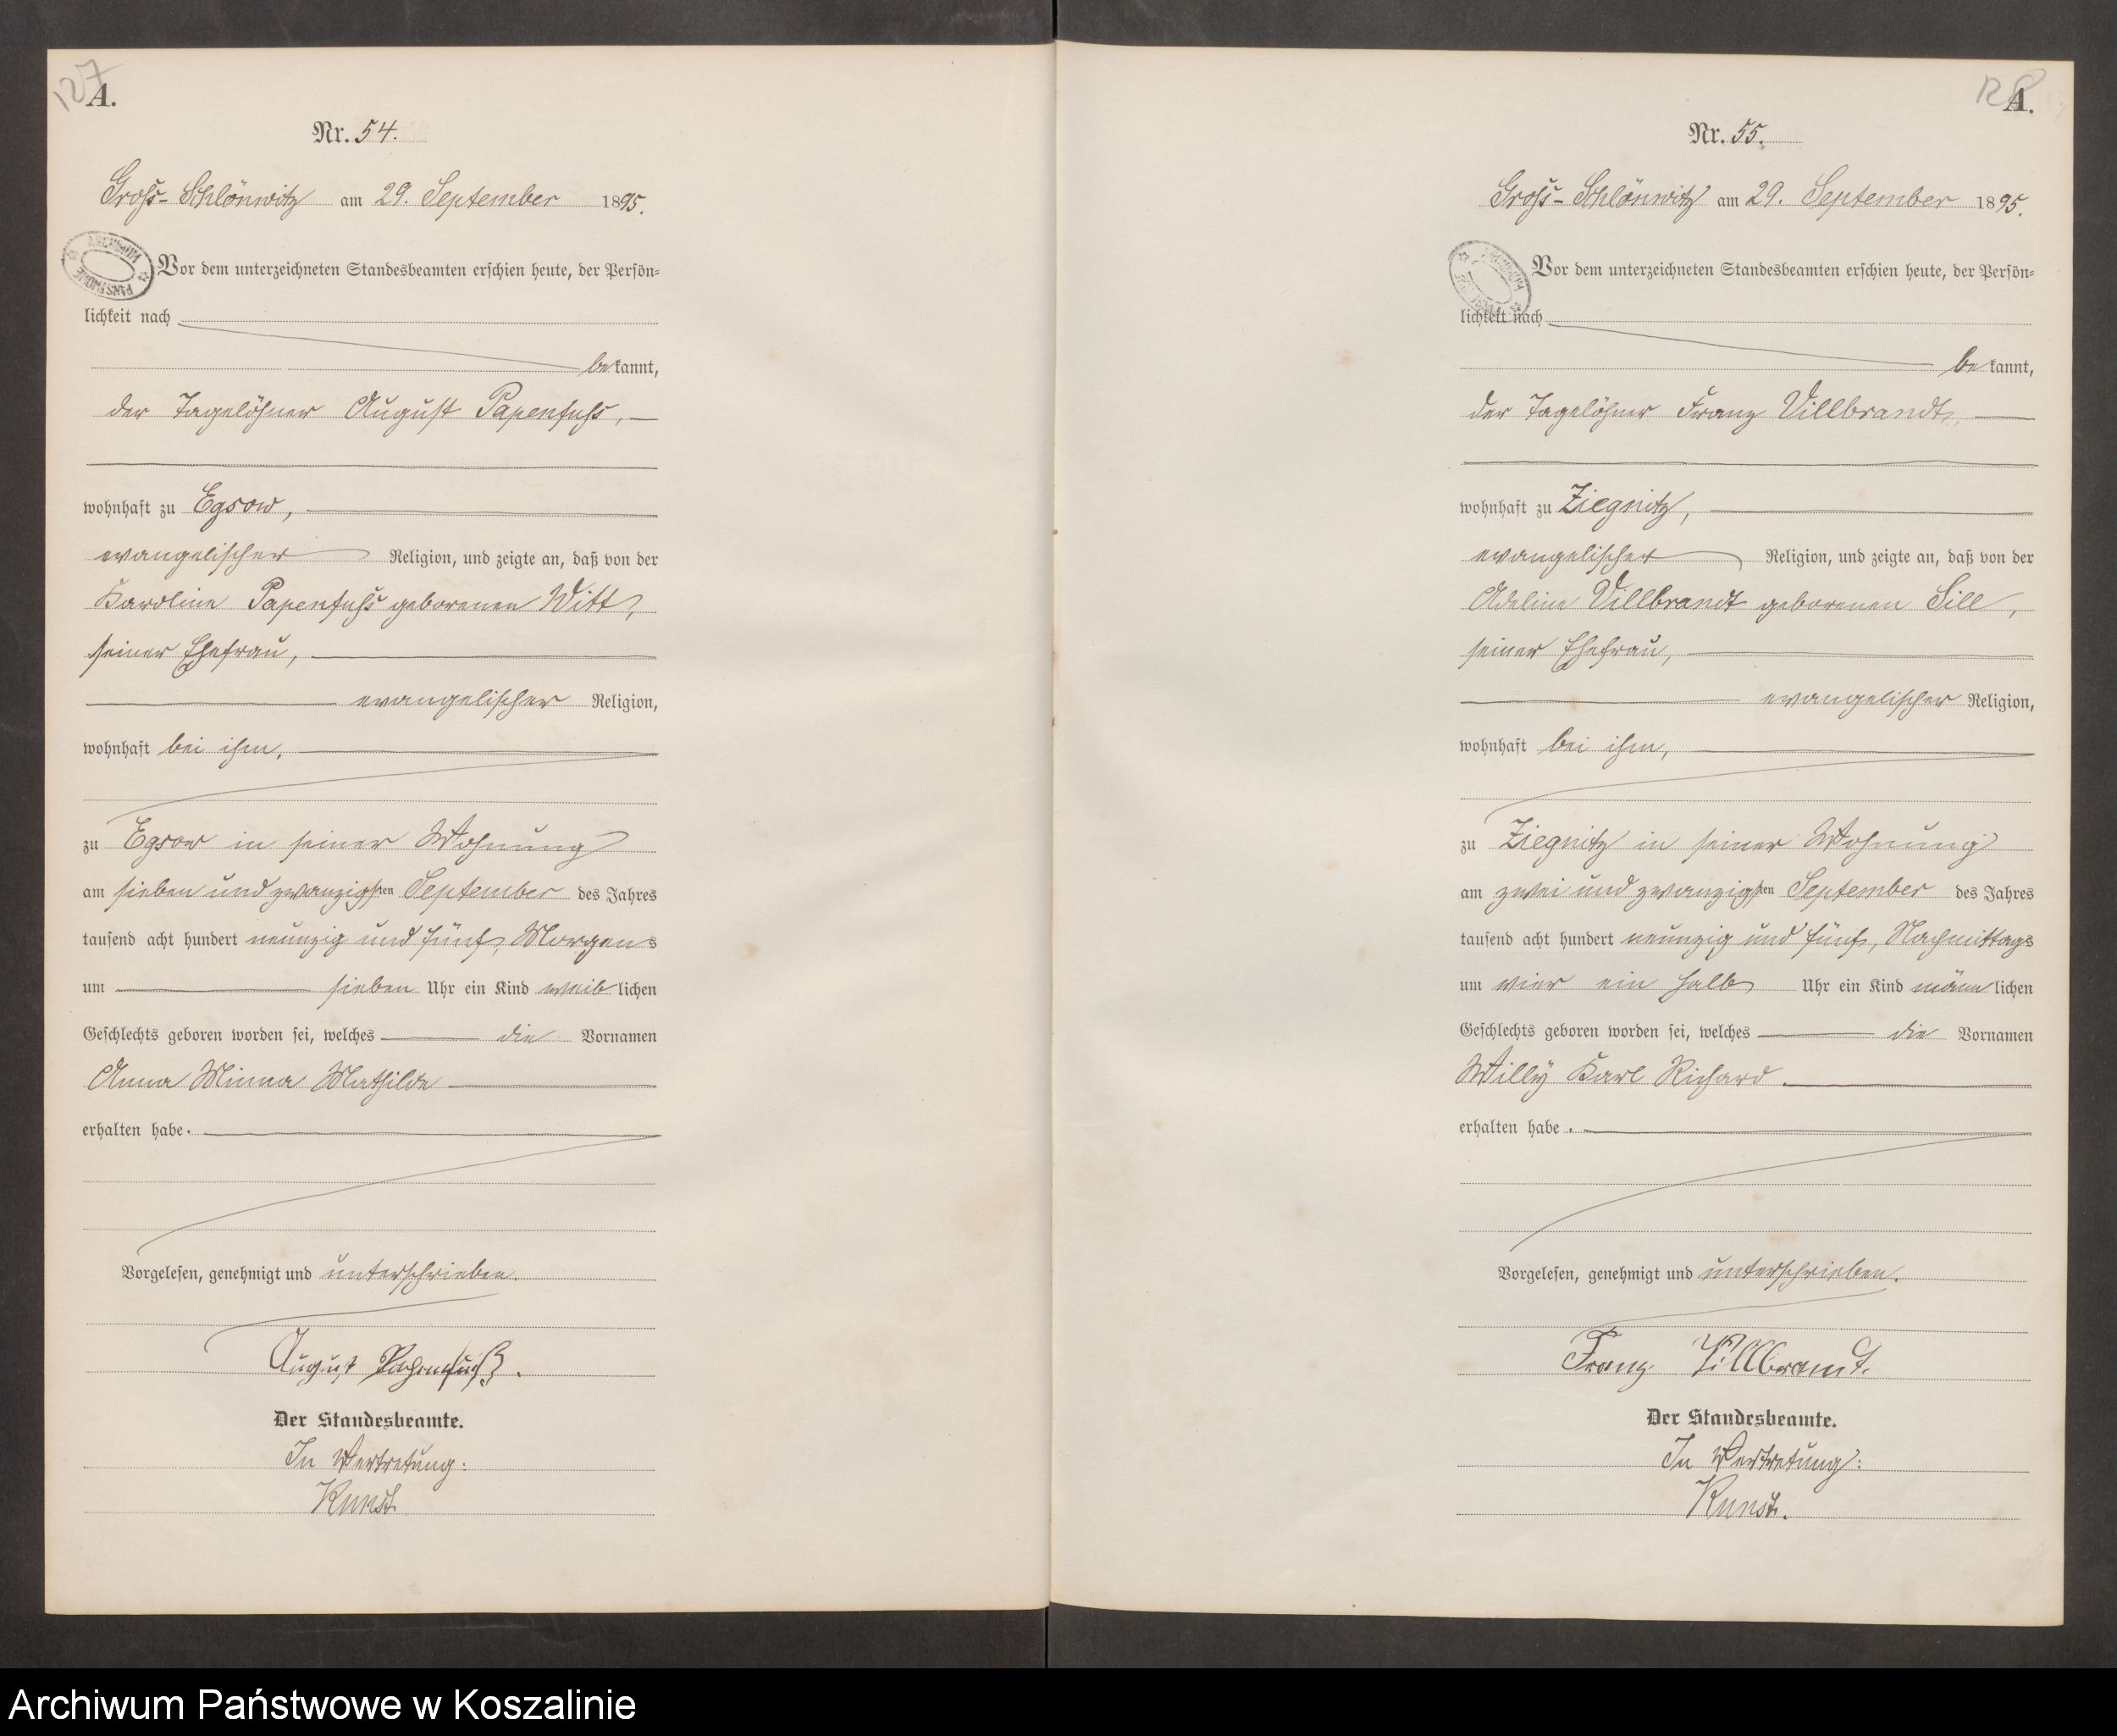 127
A.
Nr. 54.
Gross-Schlönwitz am 29. September 1895.
Vor dem unterzeichneten Standesbeamten erschien heute, der Persön-
lichkeit nach
bekannt,
der Tagelöhner August Papenfuss,
wohnhaft zu Egsow,
evangelischer Religion, und zeigte an, daß von der
Karoline Papenfuss geborenen Witt,
seiner Ehefrau,
evangelischer Religion,
wohnhaft bei ihm,
zu Egsow in seiner Wohnung
am sieben und zwanzigsten September des Jahres
tausend acht hundert neunzig und fünf, Morgens
um sieben Uhr ein Kind weiblichen
Geschlechts geboren worden sei, welches die Vornamen
Anna Minna Mathilde
erhalten habe.
Vorgelesen, genehmigt und unterschrieben.
August Papenfuß.
Der Standesbeamte.
In Vertretung:
Kunst.
128
A.
Nr. 55.
Gross-Schlönwitz am 29. September 1895.
Vor dem unterzeichneten Standesbeamten erschien heute, der Persön-
lichkeit nach
bekannt,
der Tagelöhner Franz Villbrandt,
wohnhaft zu Ziegnitz,
evangelischer Religion, und zeigte an, daß von der
Adeline Villbrandt geborenen Sill,
seiner Ehefrau,
evangelischer Religion,
wohnhaft bei ihm,
zu Ziegnitz in seiner Wohnung
am zwei und zwanzigsten September des Jahres
tausend acht hundert neunzig und fünf, Nachmittags
um vier ein halb Uhr ein Kind männlichen
Geschlechts geboren worden sei, welches die Vornamen
Willy Karl Richard
erhalten habe.
Vorgelesen, genehmigt und unterschrieben.
Franz Villbrandt.
Der Standesbeamte.
In Vertretung:
Kunst.
Archiwum Państwowe w Koszalinie